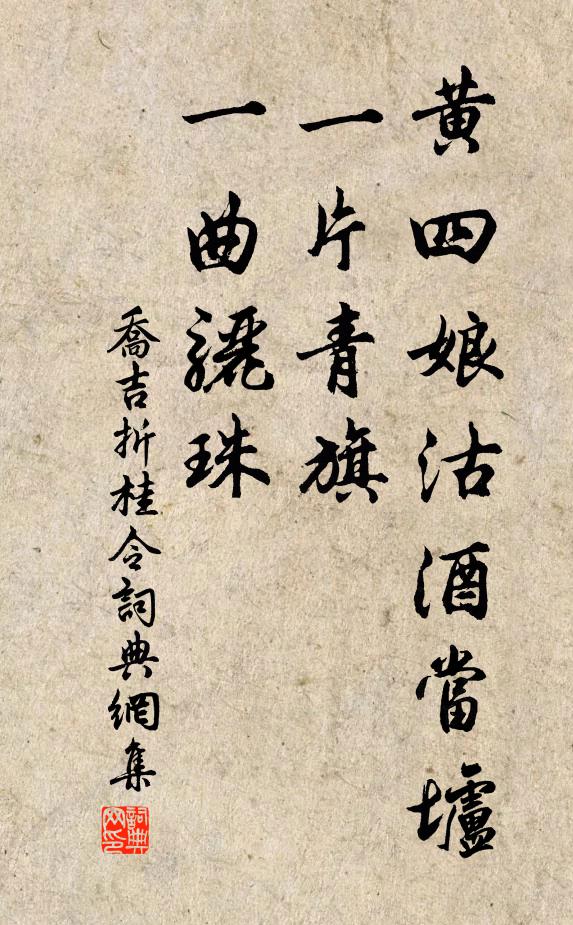 黃四娘沽酒當壚
一片青旗
一曲驪珠
喬吉折桂令詞典網集
詞典網印